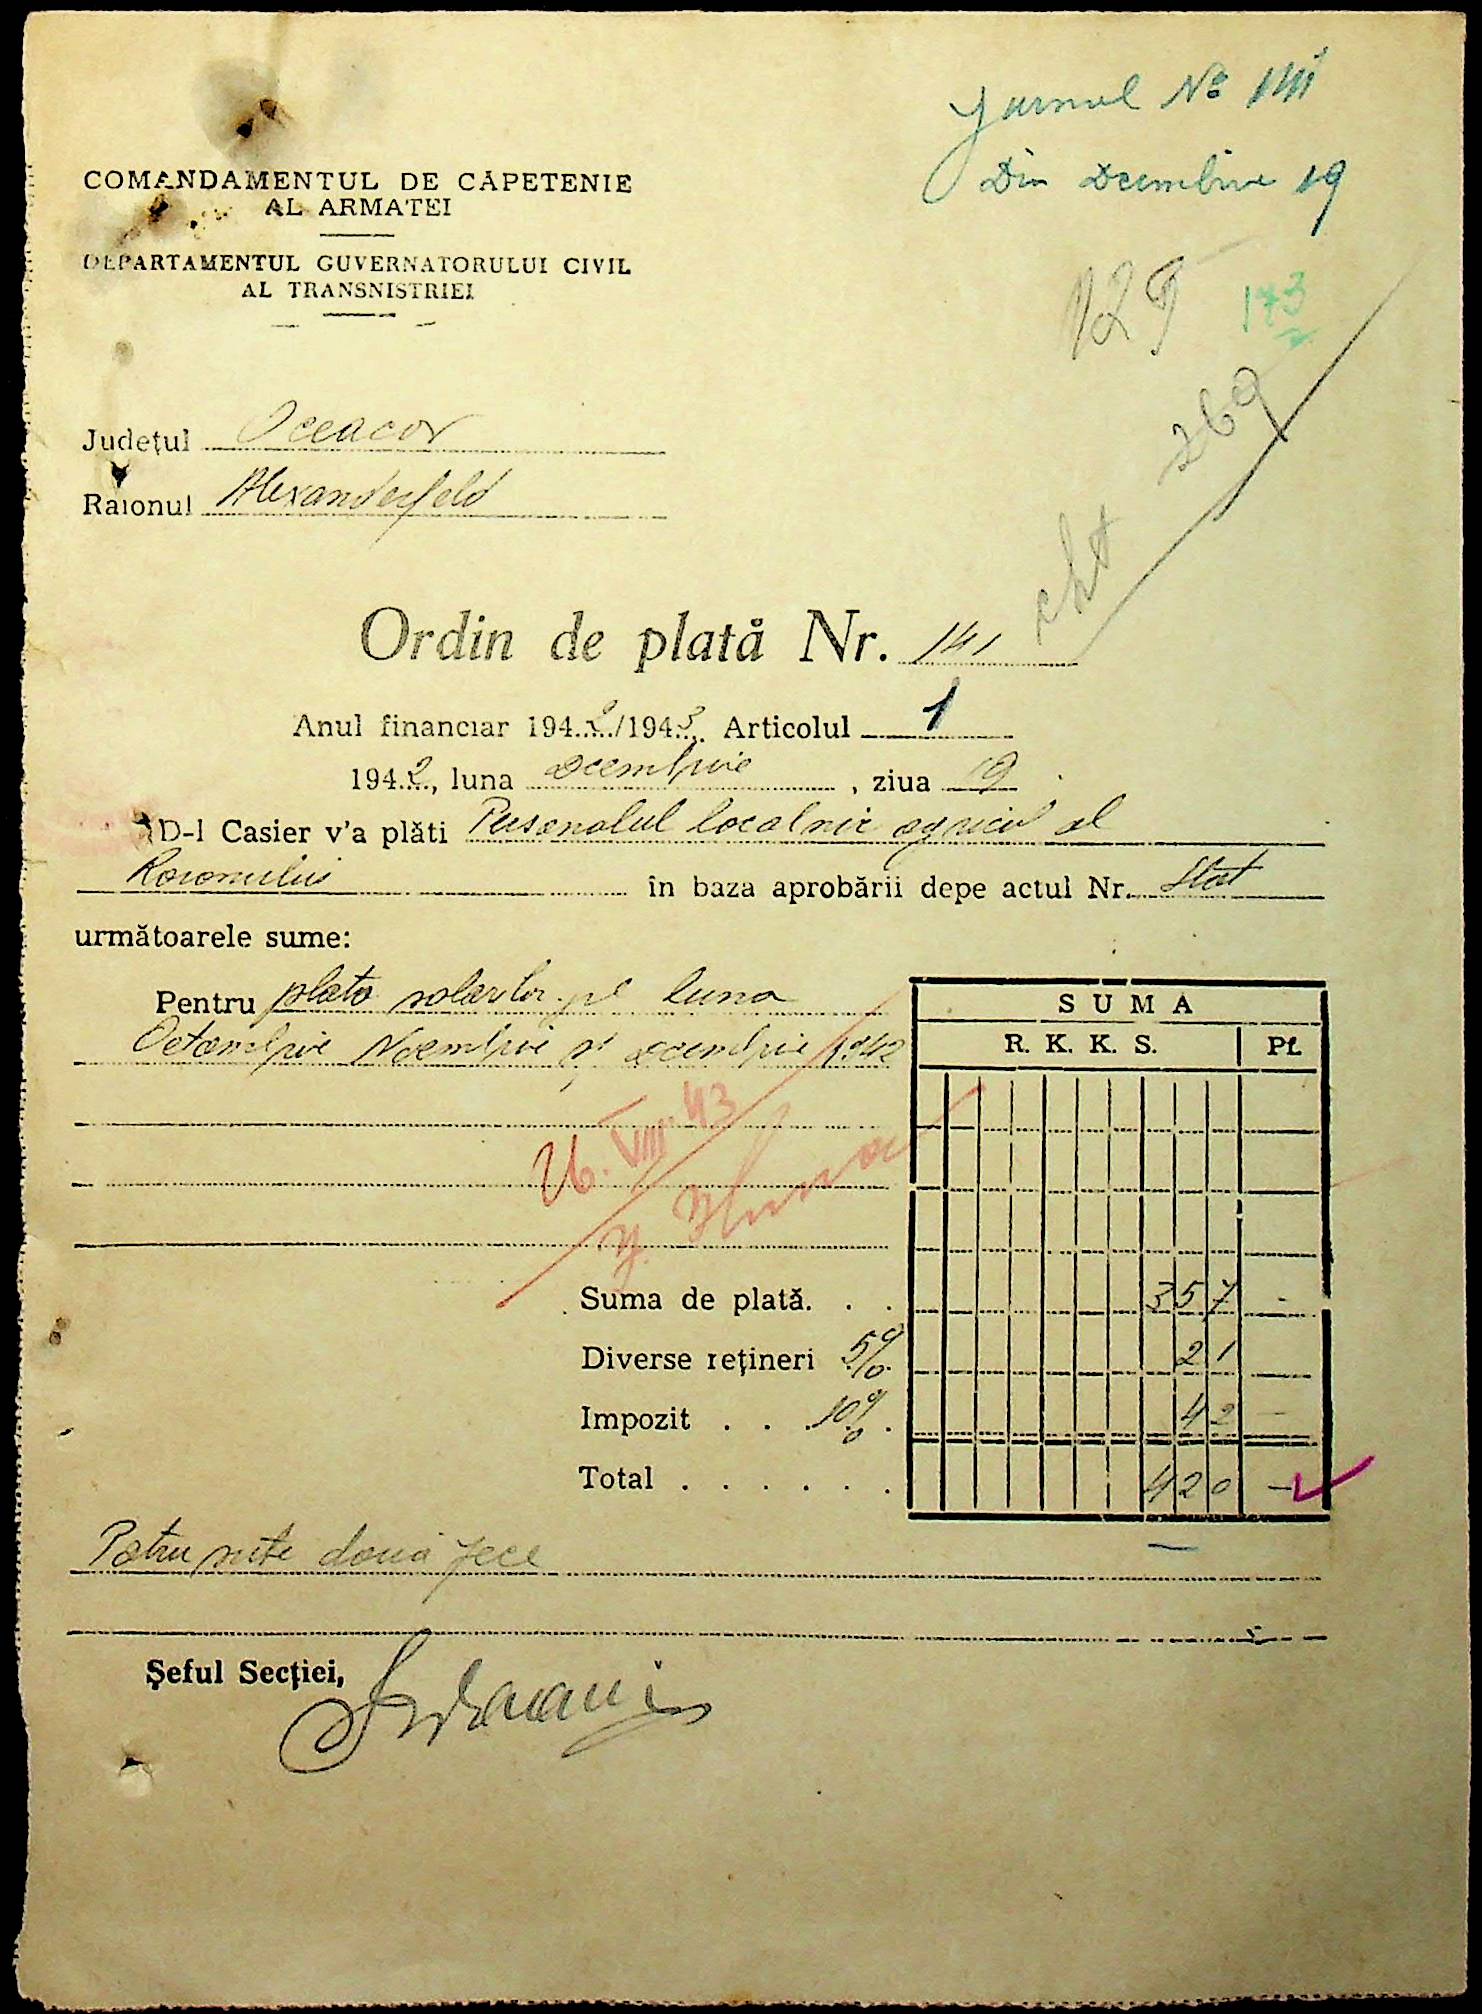 Jurnal No 141
Din Decembrie 19
COMANDAMENTUL DE CĂPETENIE
AL ARMATEI
DEPARTAMENTUL GUVERNATORULUI CIVIL
AL TRANSNISTRIEI
129
173
269
Județul Oceacov
Raionul Alexanderfeld
Ordin de plată Nr. 141
Anul financiar 1942/1943. Articolul 1
1942, luna Decembrie, ziua 19
D-l Casier v'a plăti Personalul localnic agricol al
Raionului în baza aprobării depe actul Nr. Stat
următoarele sume:
Pentru plata salarilor pe luna
Octombrie Noembrie și Decembrie 1942
SUMA
R. K. K. S. Pf.
26.VIII.43
Suma de plată. . . 357 -
Diverse rețineri 5% 21
Impozit . . 10% . 42 -
Total . . . . . . 420 -
Patru sute două zece
Șeful Secției,